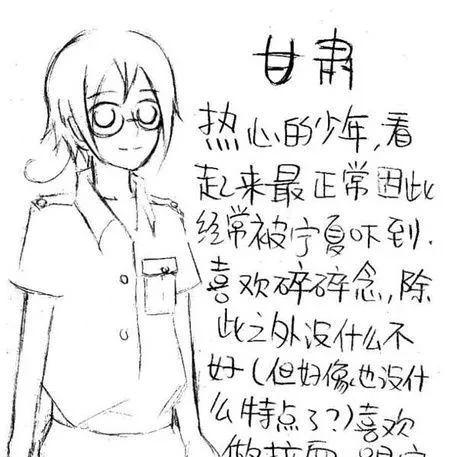 甘肃
热心的少年,看
起来最正常因此
经常被宁夏吓到.
喜欢碎碎念,除
此之外没什么不
好(但好像也没什
么特点了?)喜欢
做拉面